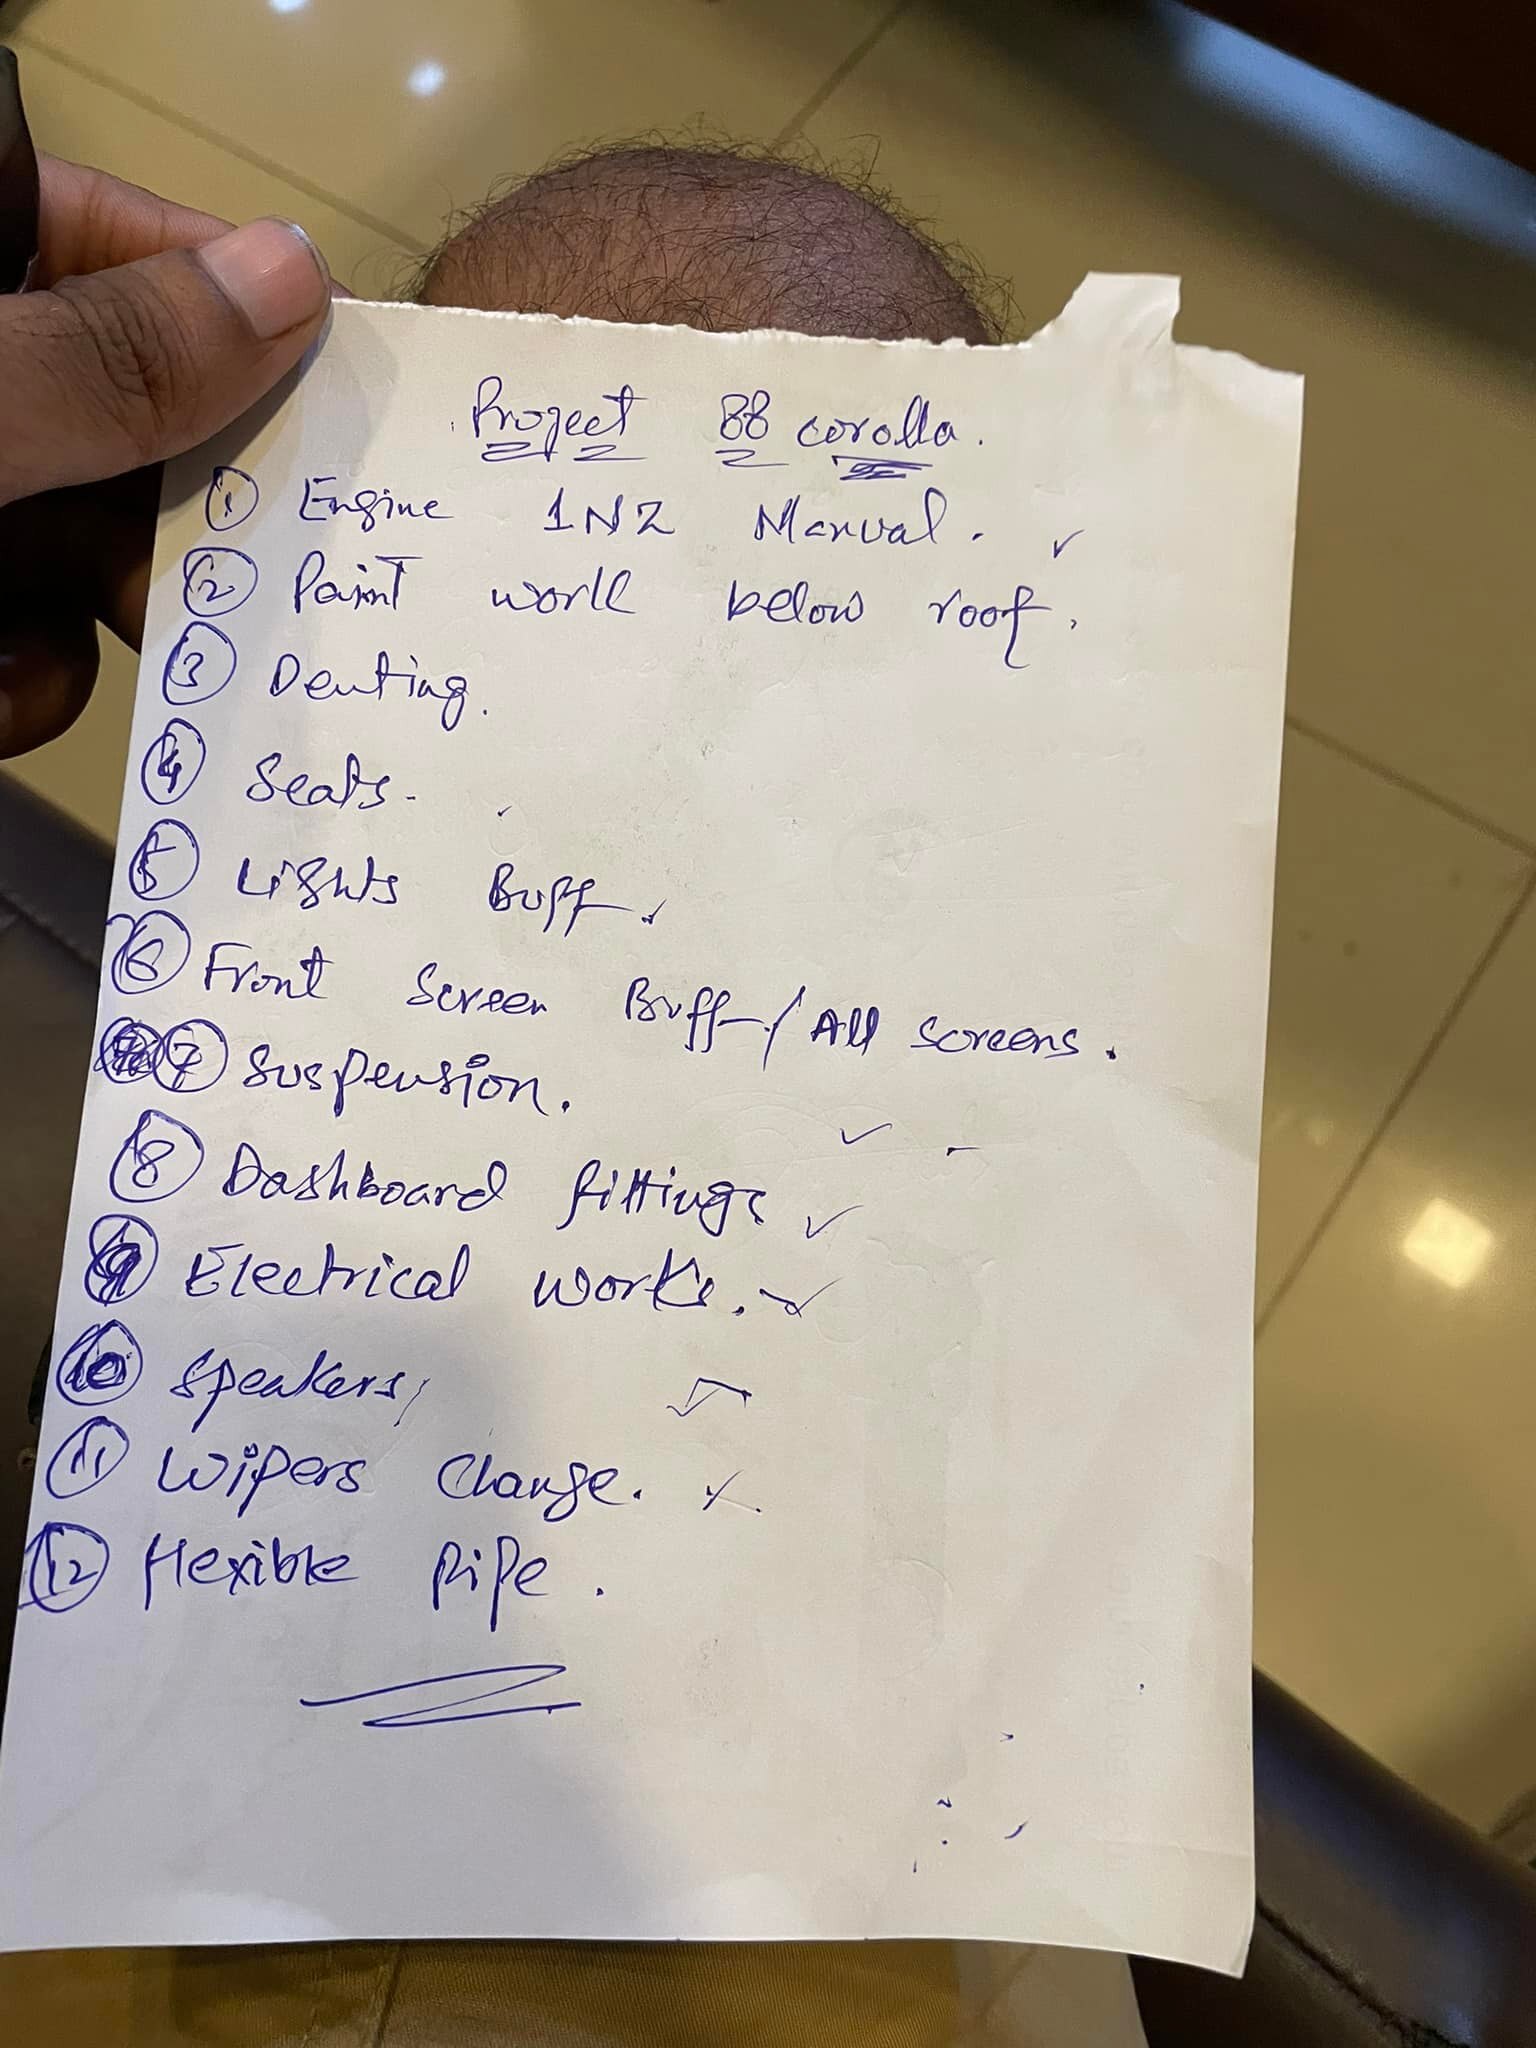 Project 88 corolla.
1 Engine 1NZ Manual. ✓
2 Paint work below roof.
3 Denting.
4 Seats.
5 Lights Buff.
6 Front Screen Buff/All screens.
7 Suspension.
8 Dashboard fittings ✓
9 Electrical works. ✓
10 Speakers, ✓
11 Wipers Change. ✓
12 Flexible Pipe.